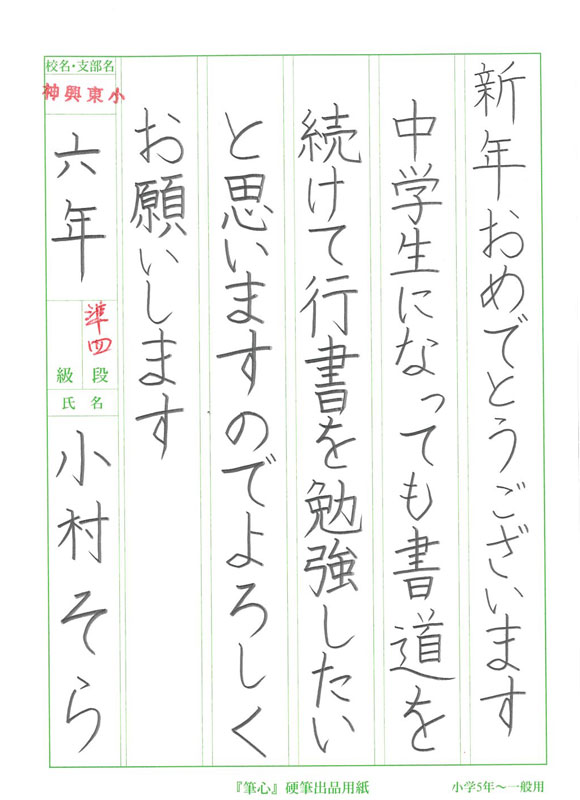 新年おめでとうございます
中学生になっても書道を
続けて行書を勉強したい
と思いますのでよろしく
お願いします
校名・支部名
神興東小
六年
準四
段
級
氏名
小村そら
『筆心』硬筆出品用紙
小学5年〜一般用